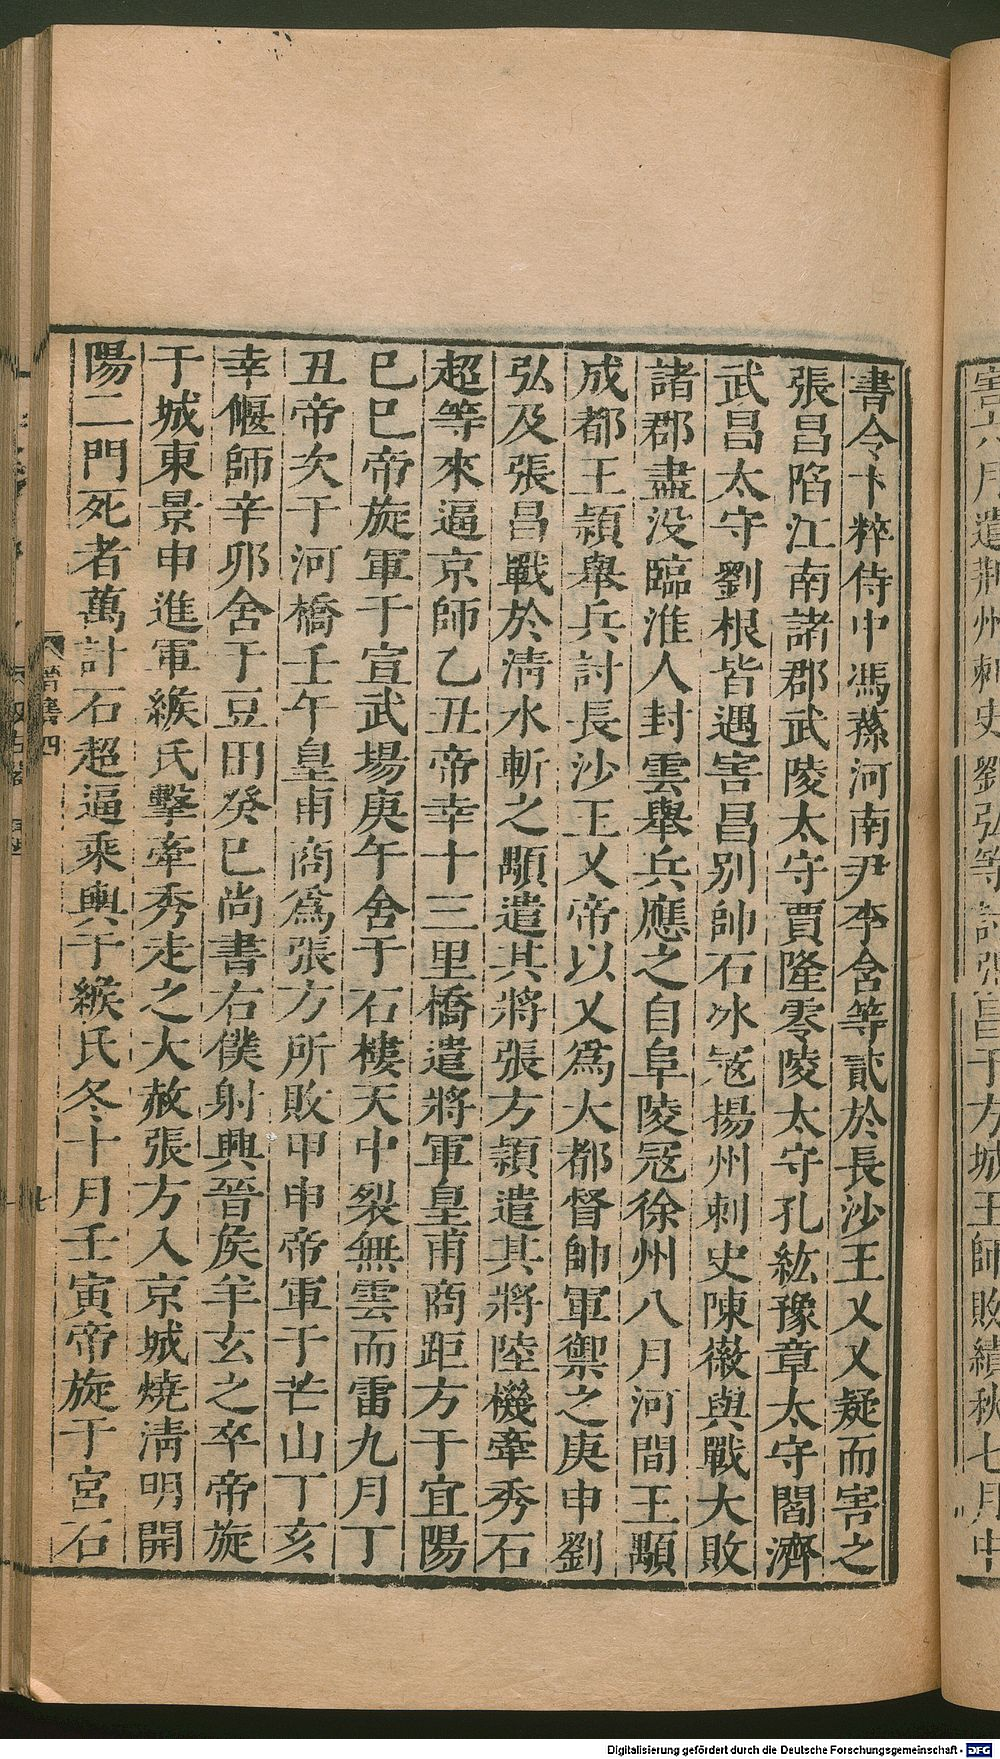 書令卞粹侍中馮蓀河南尹李含等貳於長沙王乂乂疑而害之
張昌陷江南諸郡武陵太守賈隆零陵太守孔紘豫章太守閻濟
武昌太守劉根皆遇害昌別帥石冰寇揚州刺史陳徽與戰大敗
諸郡盡没臨淮人封雲舉兵應之自阜陵寇徐州八月河間王顒
成都王頴舉兵討長沙王乂帝以乂爲大都督帥軍禦之庚申劉
弘及張昌戰於清水斬之顒遣其將張方頴遣其將陸機牽秀石
超等來逼京師乙丑帝幸十三里橋遣將軍皇甫商距方于宜陽
巳巳帝旋軍于宣武場庚午舍于石樓天中裂無雲而雷九月丁
丑帝次于河橋壬午皇甫商爲張方所敗甲申帝軍于芒山丁亥
幸偃師辛卯舍于豆田癸巳尚書右僕射興晉矦羊玄之卒帝旋
于城東景申進軍緱氏擊牽秀走之大赦張方入京城燒清明開
陽二門死者萬計石超逼乘輿于緱氏冬十月壬寅帝旋于宮石
晉書四
Digitalisierung gefördert durch die Deutsche Forschungsgemeinschaft - DFG